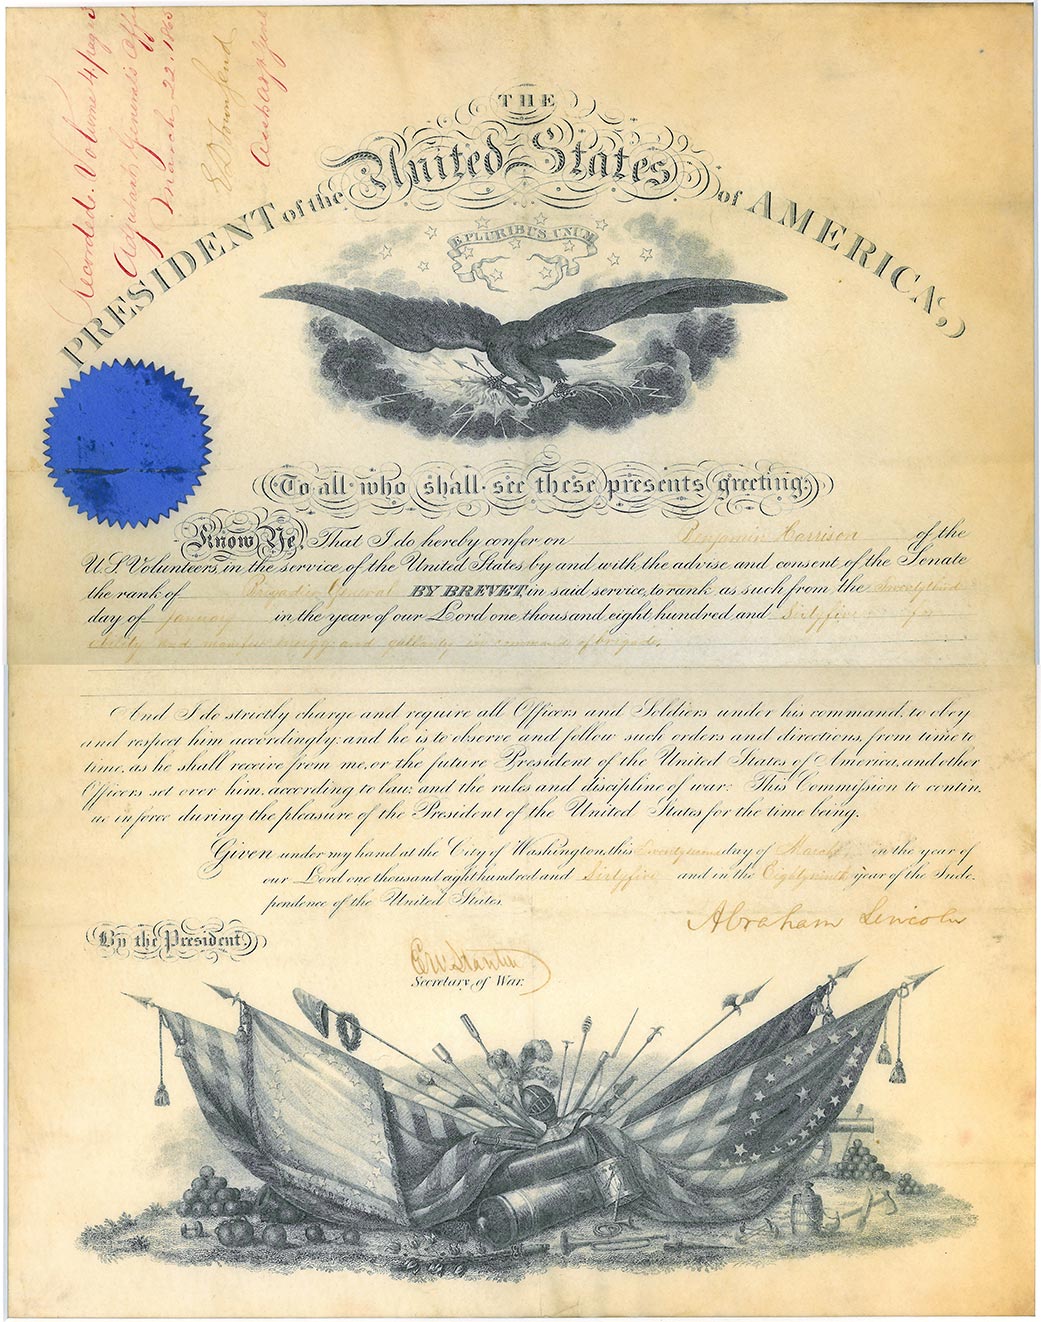 Recorded. Volume 4, page
Adjutant General's Office
March 22, 1865
E D Townsend
THE
PRESIDENT of the United States of AMERICA,
E PLURIBUS UNUM
To all who shall see these presents greeting:
Know Ye, That I do hereby confer on Benjamin Harrison of the
U.S. Volunteers, in the service of the United States by and with the advise and consent of the Senate
the rank of Brigadier General BY BREVET in said service, to rank as such from the Twenty third
day of January in the year of our Lord one thousand, eight hundred and Sixty five for
ability and manifest energy and gallantry in command of brigade.
And I do strictly charge and require all Officers and Soldiers under his command, to obey
and respect him accordingly: and he is to observe and follow such orders and directions, from time to
time, as he shall receive from me, or the future President of the United States of America, and other
Officers set over him, according to law, and the rules and discipline of war. This Commission to contin,
ue in force during the pleasure of the President of the United States for the time being.
Given under my hand at the City of Washington, this Twenty second day of March in the year of
our Lord one thousand eight hundred and Sixty five and in the Eighty ninth year of the Inde
pendence of the United States.
Abraham Lincoln
By the President,
Secretary of War.